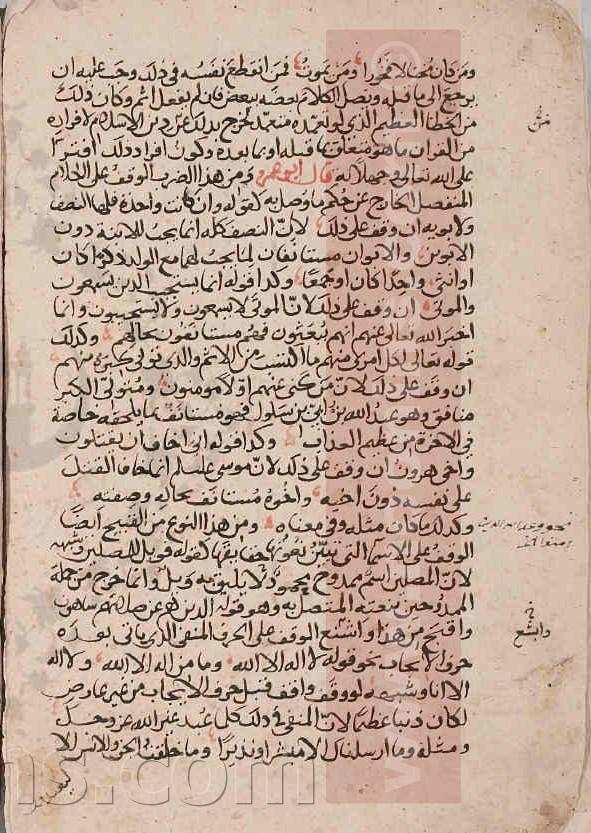 ومن كان مختالا فخورا ومن يموت فمن انقطع نفسه في ذلك وجب عليه ان
يرجع الى ما قبله ويصل الكلام بعضه ببعض فان لم يفعل اثم وكان ذلك
من الخطا العظيم الذي لو تعمده متعمد لخرج بذلك عن دين الاسلام لافراده
من القران ما هو متعلق بما قبله او بما بعده وكون افراد ذلك افترا
على الله تعالى وجهلا به قال ابو عمرو ومن هذا الضرب الوقف على الكلام
المنفصل الخارج عن حكم ما وصل به كقوله وان كانت واحدة فلها النصف
ولابويه ان وقف على ذلك لان النصف كله انما يجب للابنة دون
الابوين والابوان مستانفان لما يجب لهما مع الولد ذكرا كان
او انثى واحدا كان او جمعا وكذا قوله انما يستجيب الذين يسمعون
والموتى ان وقف على ذلك لان الموتى لا يسمعون ولا يستجيبون وانما
اخبر الله تعالى عنهم انهم يبعثون فهم مستانفون بحالهم وكذلك
قوله تعالى لكل امرئ منهم ما اكتسب من الاثم والذي تولى كبره منهم
ان وقف على ذلك لان من كنى عنهم اولا مومنون ومتولي الكبر
منافق وهو عبد الله بن ابي بن سلول فهو مستانف بما يلحقه خاصة
في الاخرة من عظيم العذاب وكذا قوله اني اخاف ان يقتلون
واخي هرون ان وقف على ذلك لان موسى عليه السلام انما خاف القتل
على نفسه دون اخيه واخوه مستانف بحاله وصفته
وكذلك ما كان مثله وفي معناه ومن هذا النوع من القبيح ايضا
الوقف على الاسما التي تبين نعوتها حقايقها كقوله فويل للمصلين وشبهه
لان المصلين اسم ممدوح محمود لا يليق به ويل وانما خرج من جملة
الممدوحين بنعته المتصل به وهو قوله الذين هم عن صلاتهم ساهون
واقبح من هذا واشنع الوقف على الحرف المنفي الذي ياتي بعده
حرف الايجاب نحو قوله لا اله الا الله وما من اله الا الله ولا اله
الا انا وشبهه لو وقف واقف قبل حرف الايجاب من غير عارض
لكان ذنبا عظيما لان المنفي في ذلك كل ما عبد غير الله عز وجل
ومثله وما ارسلناك الا مبشرا ونذيرا وما خلقت الجن والانس الا
ليعبدون
من
وابشع